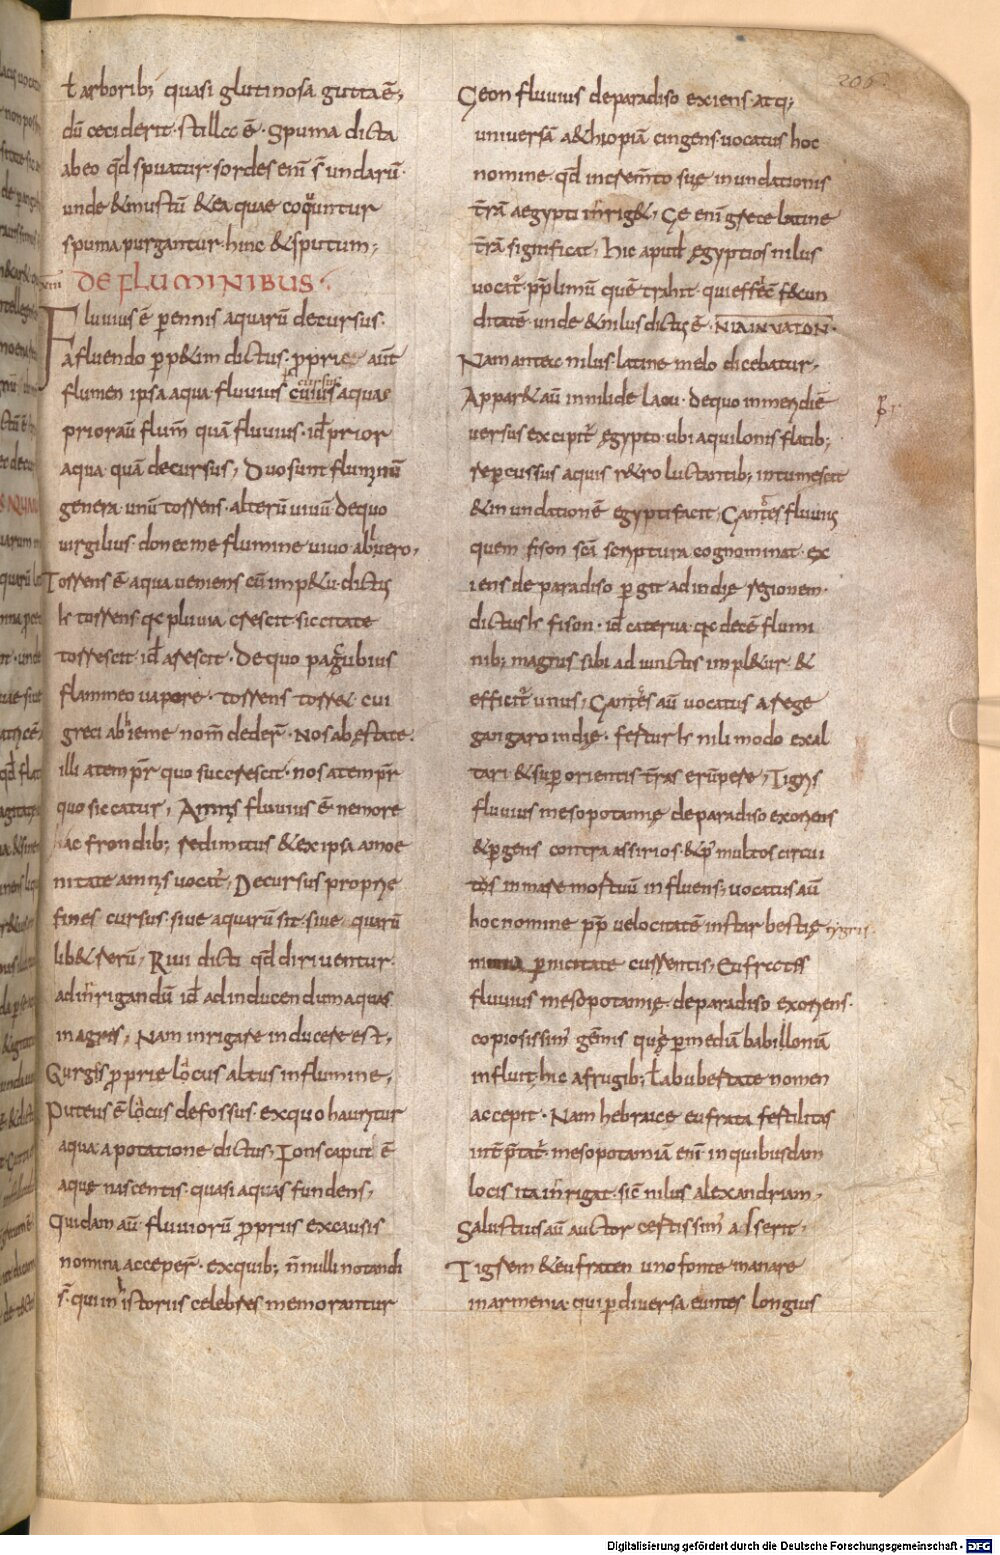 ł arborib; quasi glutinosa gutta ē;
dū ceciderit stilla ē. Spuma dicta
ab eo qđ spuatur. sordes enī s̄ undarū.
unde & mustū & ea quae coquntur
spuma purgantur. hinc & sputum;
DE FLUMINIBUS
Fluuius ē perennis aquarū decursus.
a fluendo perp&im dictus. proprie aut
flumen ipsa aqua. fluuius cursus aquae
prior aū flum̄ quā fluuius. iđ prior
aqua quā decursus; Duo sunt fluminū
genera. unū torrens. alterū uiuū. De quo
uirgilius. donec me flumine uiuo abluero;
Torrens ē aqua ueniens cū imp&u. dictus
torrens. pluuia crescit. siccitate
torrescit. iđ arescit. De quo pacubius
flammeo uapore. torrens torr& cui
greci ab hieme nom̄ deder̄. Nos ab ęstate.
illi a temp̄r quo succrescit. nos a temp̄r
quo siccatur; Amnis fluuius ē nemore
hac frondib; redimitus & ex ipsa amoe
nitate amnis uocat̄; Decursus proprie
fines cursus. siue aquarū sit. siue quarū
lib& rerū; Riui dicti qđ diriuentur
ad inrigandū iđ ad inducendum aquas
in agris; Nam inrigare inducere est;
Gurges proprie locus altus in flumine;
Puteus ē locus defossus. ex quo hauritur
aqua a potatione dictus; Fons caput ē
aquę nascentis. quasi aquas fundens;
Quidam aū fluuiorū propriis ex causis
nomina acceper̄. ex quib; n̄nulli notandi
s̄. qui in historiis celebres memorantur
206
Geon fluuius de paradiso exiens. atq;
uniuersā a&hiopiā cingens. uocatus hoc
nomine. qđ incremto suę inundationis
tr̄ā aegypti inrig&; Ge enī grece latine
tr̄ā significat; Hic apud ęgyptios nilus
uocat̄ pp̄ limū quē trahit. qui efficit fecun
ditatē. unde & nilus dictus ē. NIAINVATON.
Nam antea nilus latine melo dicebatur;
Appar& aū in nilide lacu. de quo in meridiē
uersus excipit̄ ęgypto. ubi aquilonis flatib;
repercussus aquis r&ro luctantib; intumescit
& inundationē egypti facit; Ganges fluuius
quem fison scā scriptura cognominat. ex
iens de paradiso pergit ad indię regionem.
dictus fison. iđ caterua. decē flumi
nib; magnis sibi adiunctis impl&ur. &
efficit̄ unus; Ganges aū uocatus a rege
gangaro indię. fertur nili modo exal
tari & super orientis tr̄as erūpere; Tigris
fluuius mesopotamię de paradiso exoriens
& pergens contra assirios. & p̄ multos circui
tos in mare mortuū influens; uocatus aū
hoc nomine pp̄ uelocitatē instar bestię tygris
pernicitate currentis; Eufrates
fluuius mesopotamię. de paradiso exoriens.
copiosissim̄ gēmis quę per mediā babilloniā
influit; hic a frugib; ł ab ubertate nomen
accepit. Nam hebraice eufrata fertilitas
int̄ p̄tat̄. mesopotamiā enī in quibusdam
locis ita inrigat. sic̄ nilus alexandriam.
Salustius aū auctor certissim̄ adserit;
Tigrem & eufraten uno fonte manare
in armenia. qui per diuersa euntes longius
Digitalisierung gefördert durch die Deutsche Forschungsgemeinschaft - DFG